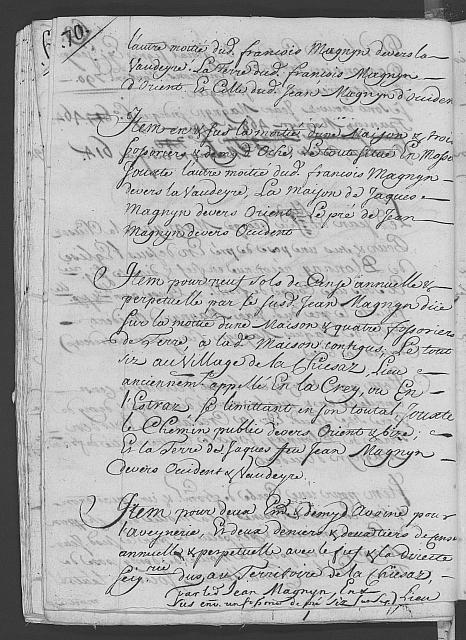 70.
l'autre moitié dud. francois Magnyn devers la
Vaudeyre. La Terre dud. francois Magnyn
d'Orient. Et Celle dud. Jean Magnyn d'Occident
Item en & sus la moitié d'une Maison & trois
fossoriers & demy d'Oche, le tout situé En
Jouxte l'autre moitié dud. francois Magnyn
devers la Vaudeyre, La Maison de Jaques
Magnyn devers Orient. Le pré de Jean
Magnyn devers Occident
Item pour neuf sols de Cense annuelle &
perpetuelle par le susd. Jean Magnyn
Sur la moitié d'une Maison & quatre fossoriers
de Terre, à lad. Maison contigus, Le tout
siz au Village de la Chiesaz, Lieu
anciennemt. appellé En la Crey, ou En
l'Estraz se limittant en son toutal, Jouxte
le Chemin public devers Orient & bize,
Et la Terre de Jaques feu Jean Magnyn
devers Occident & Vaudeyre.
Item pour deux & demy d'avoine pour
l'aveynerie, Et deux deniers & de cense
annuelle & perpetuelle avec le fief & la Directe
Seigrie. dus au Territoire de la Chiesaz
par led. Jean Magnyn, Lieu
Sus env. un de pré siz